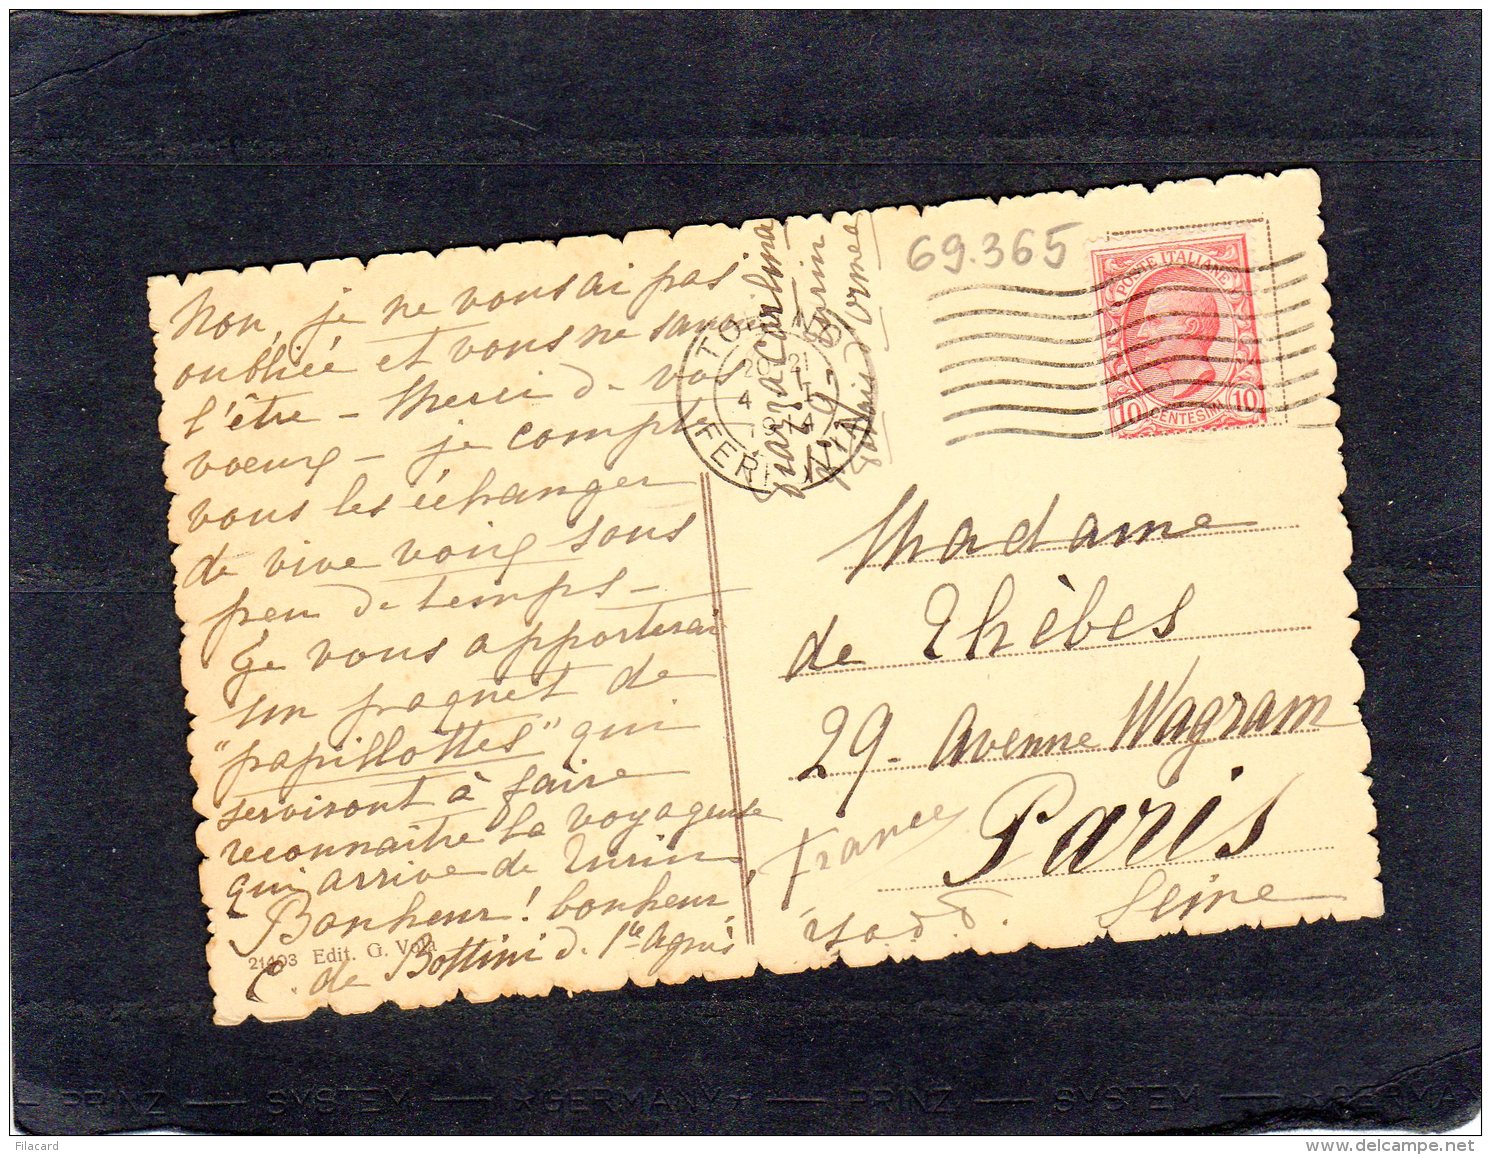 Non, je ne vous ai pas
oubliée et vous ne sauriez
l'être – Merci de vos
voeux – je compte
vous les échanger
de vive voix sous
peu de temps –
Je vous apporterai
un paquet de
"papillottes" qui
serviront à faire
reconnaître la voyageuse
qui arrive de Turin
Bonheur! bonheur,
C. de Bottini d. Ste Agnès
21403 Edit. G. Vola
Piazza Carlina
Turin
TORINO
20-21
4 I
FERROVIA
69.365
POSTE ITALIANE
10 CENTESIMI 10
Madame
de Thèbes
29 - Avenue Wagram
Paris
France
Seine
PRINZ — SYSTEM — ★GERMANY★ — PRINZ — SYSTEM — ★GERMA
Filacard
www.delcampe.net